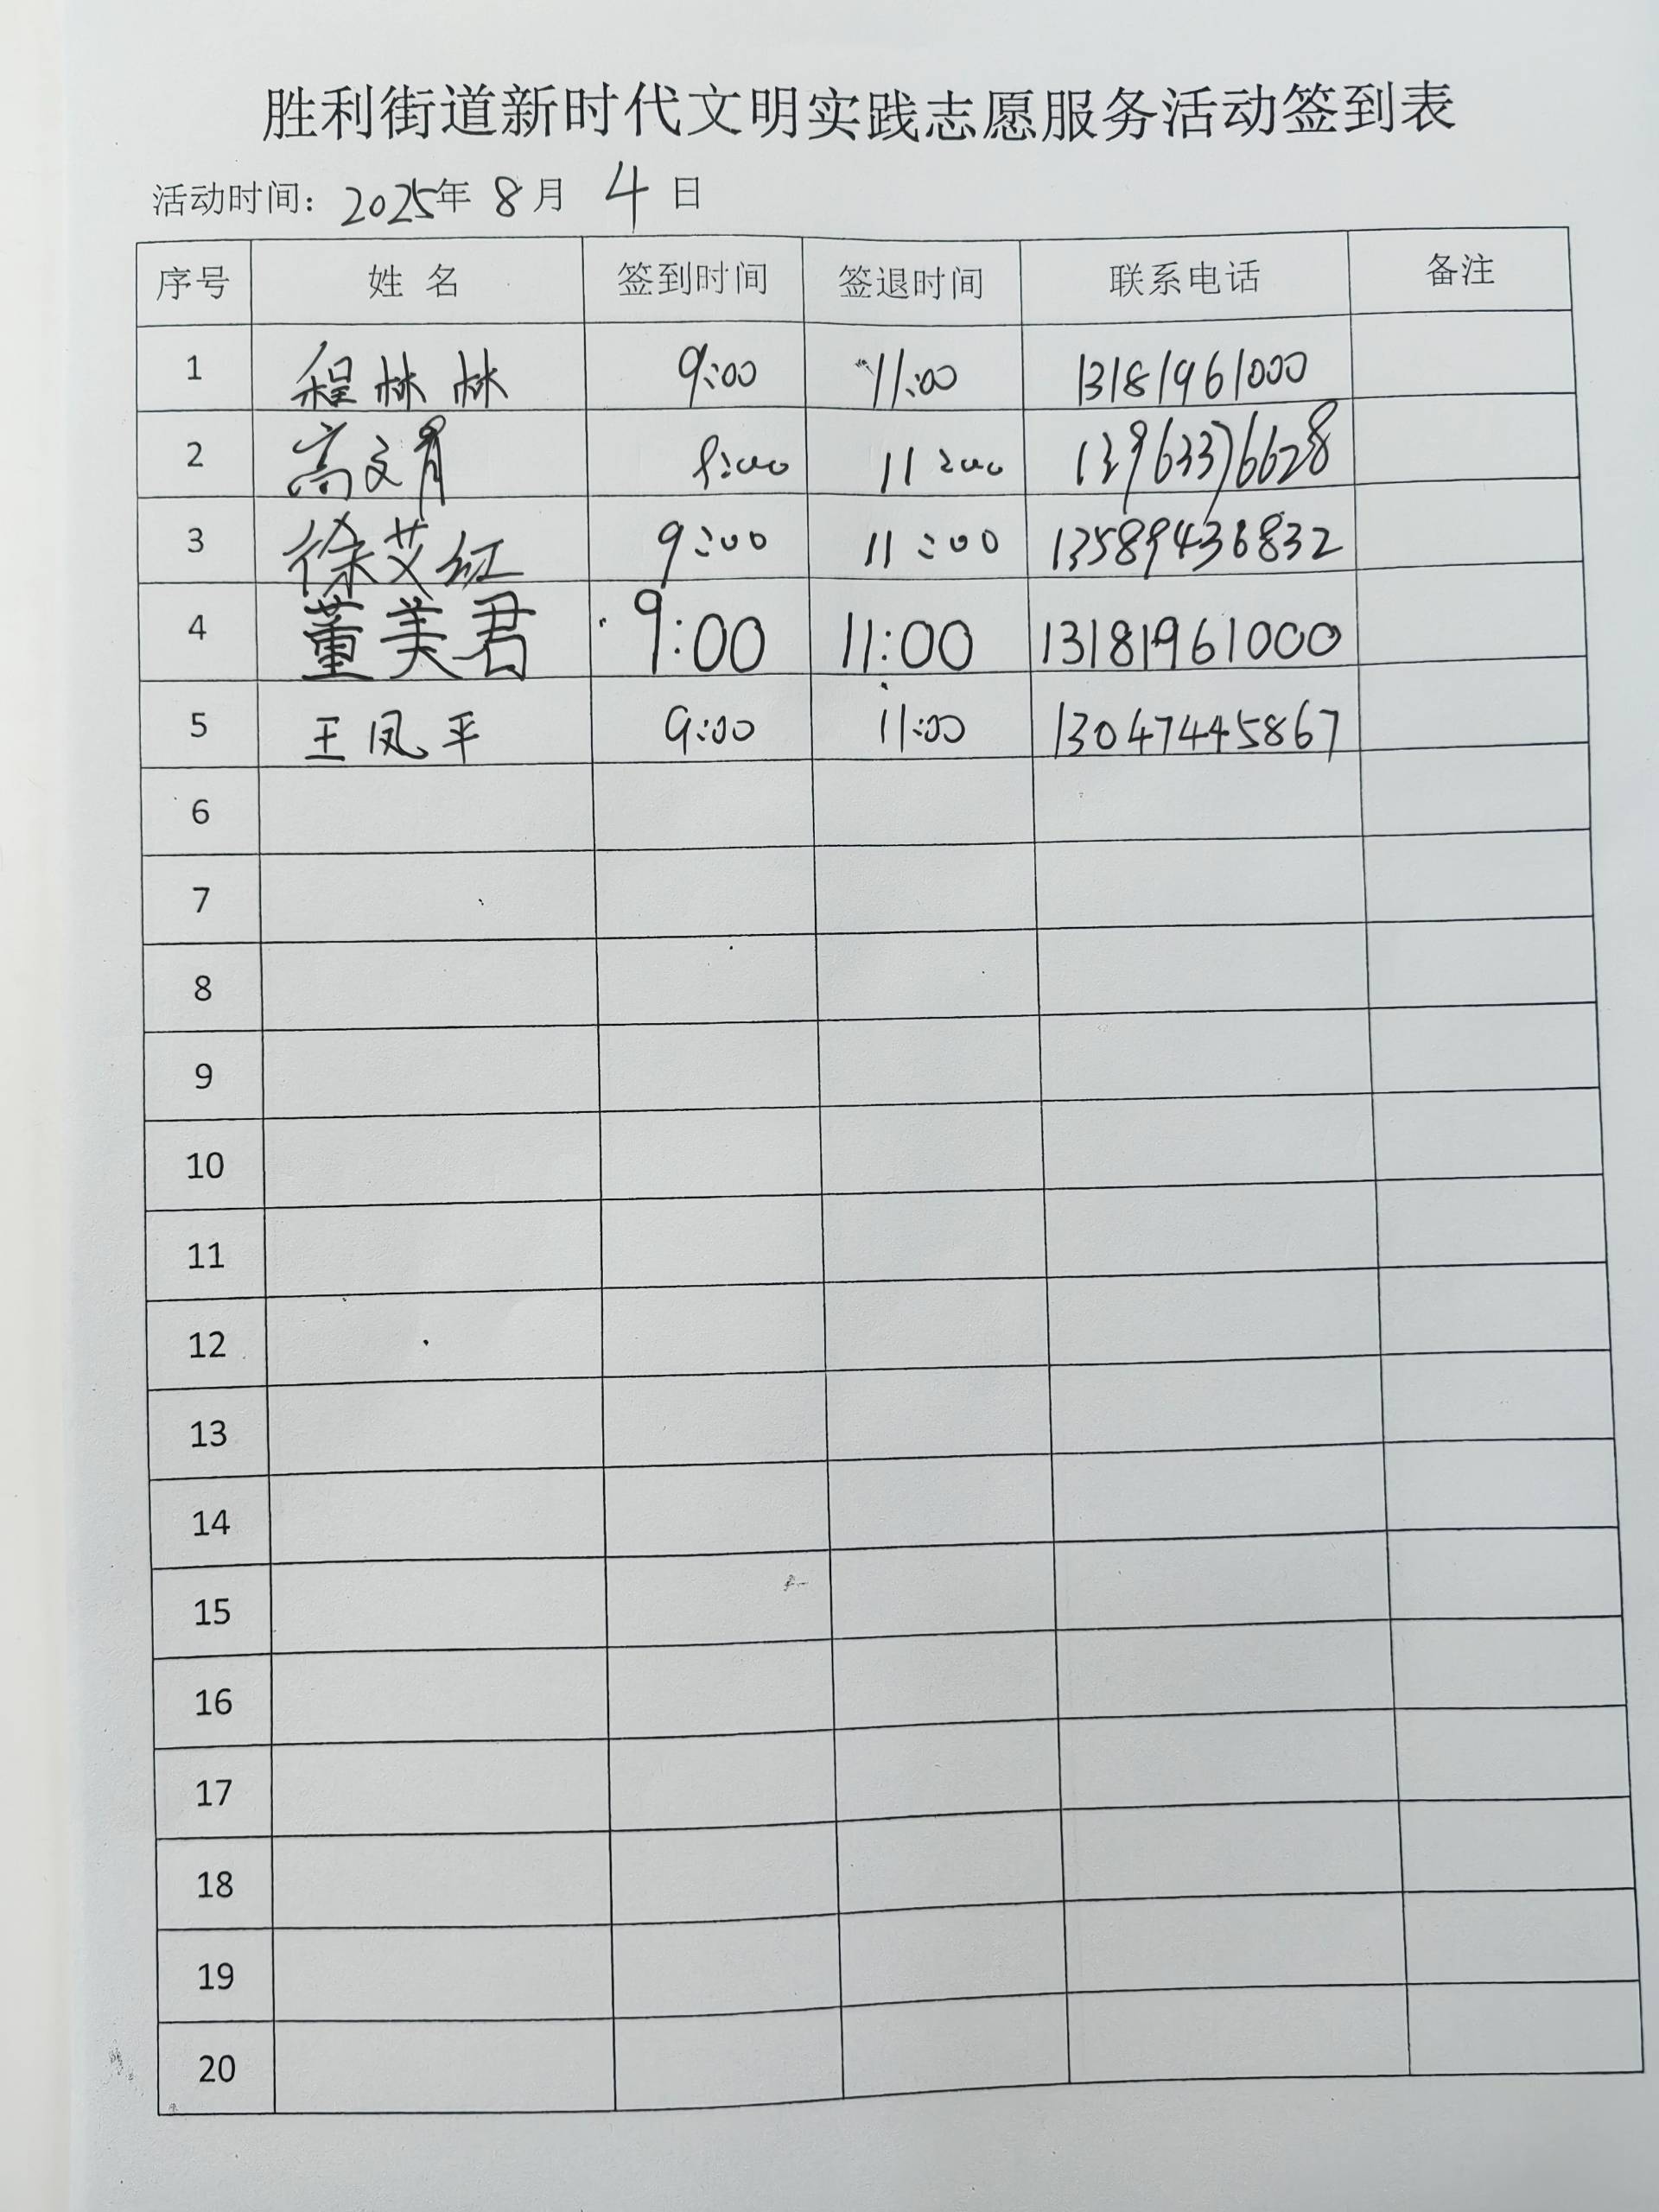 胜利街道新时代文明实践志愿服务活动签到表
活动时间：2025年 8月 4日
序号 姓 名 签到时间 签退时间 联系电话 备注
1 程林林 9:00 11:00 13181961000
2 高文 9:00 11:00 13963376628
3 徐艾红 9:00 11:00 13589436832
4 董美君 9:00 11:00 13181961000
5 王凤平 9:00 11:00 13047445867
6
7
8
9
10
11
12
13
14
15
16
17
18
19
20